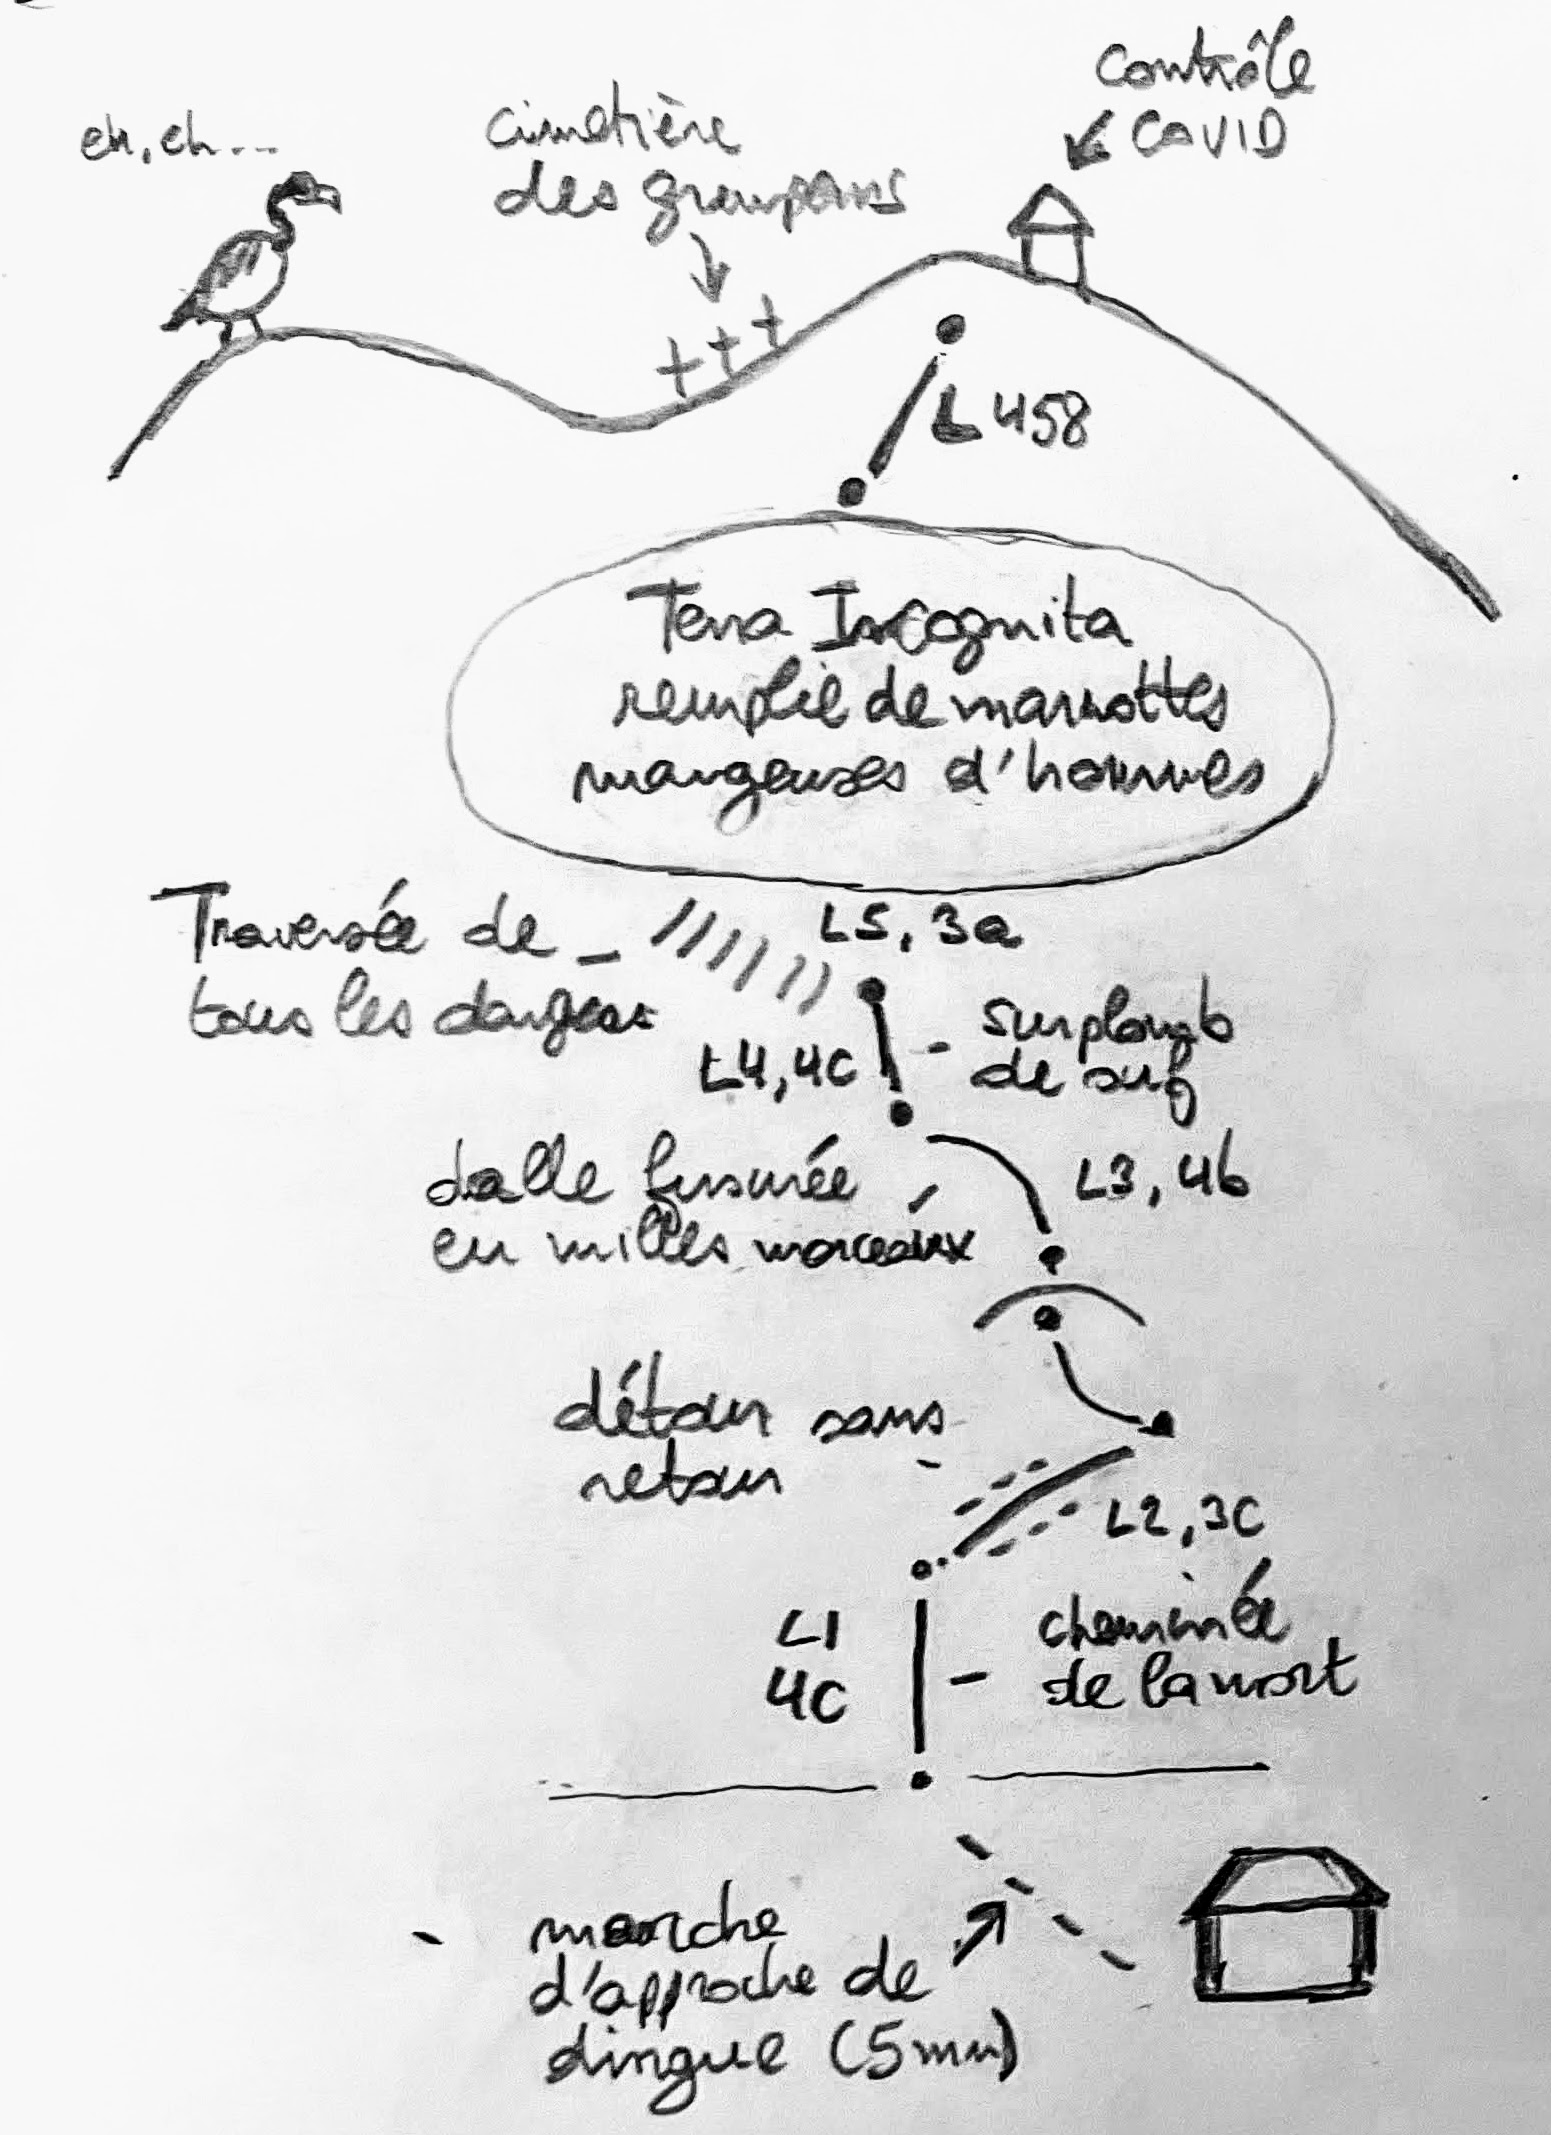 eh, eh...
cimetière
des grimpeurs
contrôle
COVID
L458
Terra Incognita
remplie de marmottes
mangeuses d'hommes
Traversée de
tous les dangers
L5, 3a
L4, 4c
surplomb
de ouf
dalle fissurée
en milles morceaux
L3, 4b
détour sans
retour
L2, 3c
L1
4c
cheminée
de la mort
marche
d'approche de
dingue (5mn)